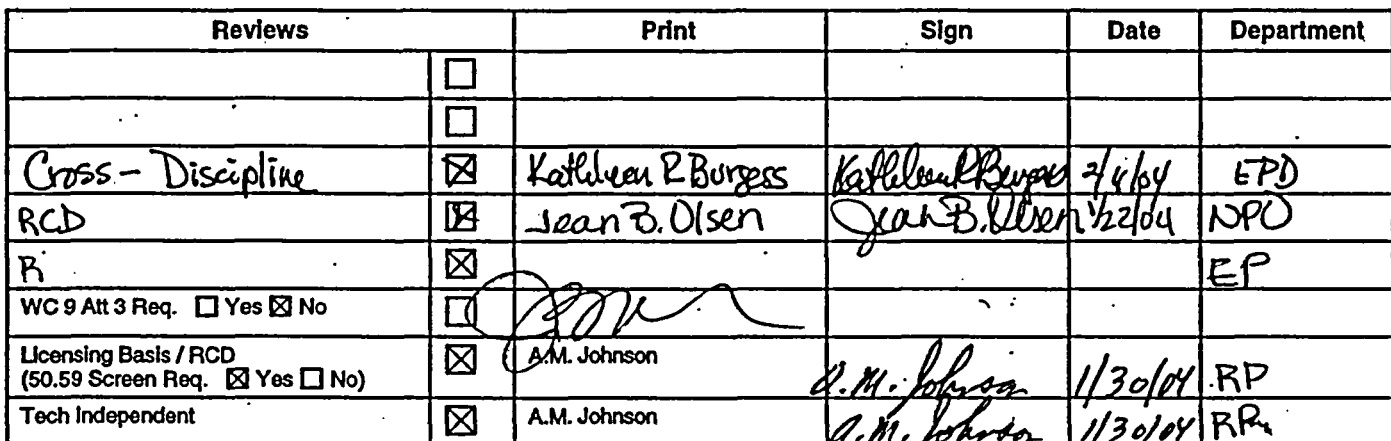 Reviews Print Sign Date Department
Cross - Discipline Kathleen R Burgess Kathleen R Burgess EPD
RCD Jean B. Olsen Jean B. Olsen 1/22/04 NPO
R EP
WC 9 Att 3 Req. Yes No
Licensing Basis / RCD A.M. Johnson A.M. Johnson 1/30/04 RP
(50.59 Screen Req. Yes No)
Tech Independent A.M. Johnson A.M. Johnson 1/30/04 RP